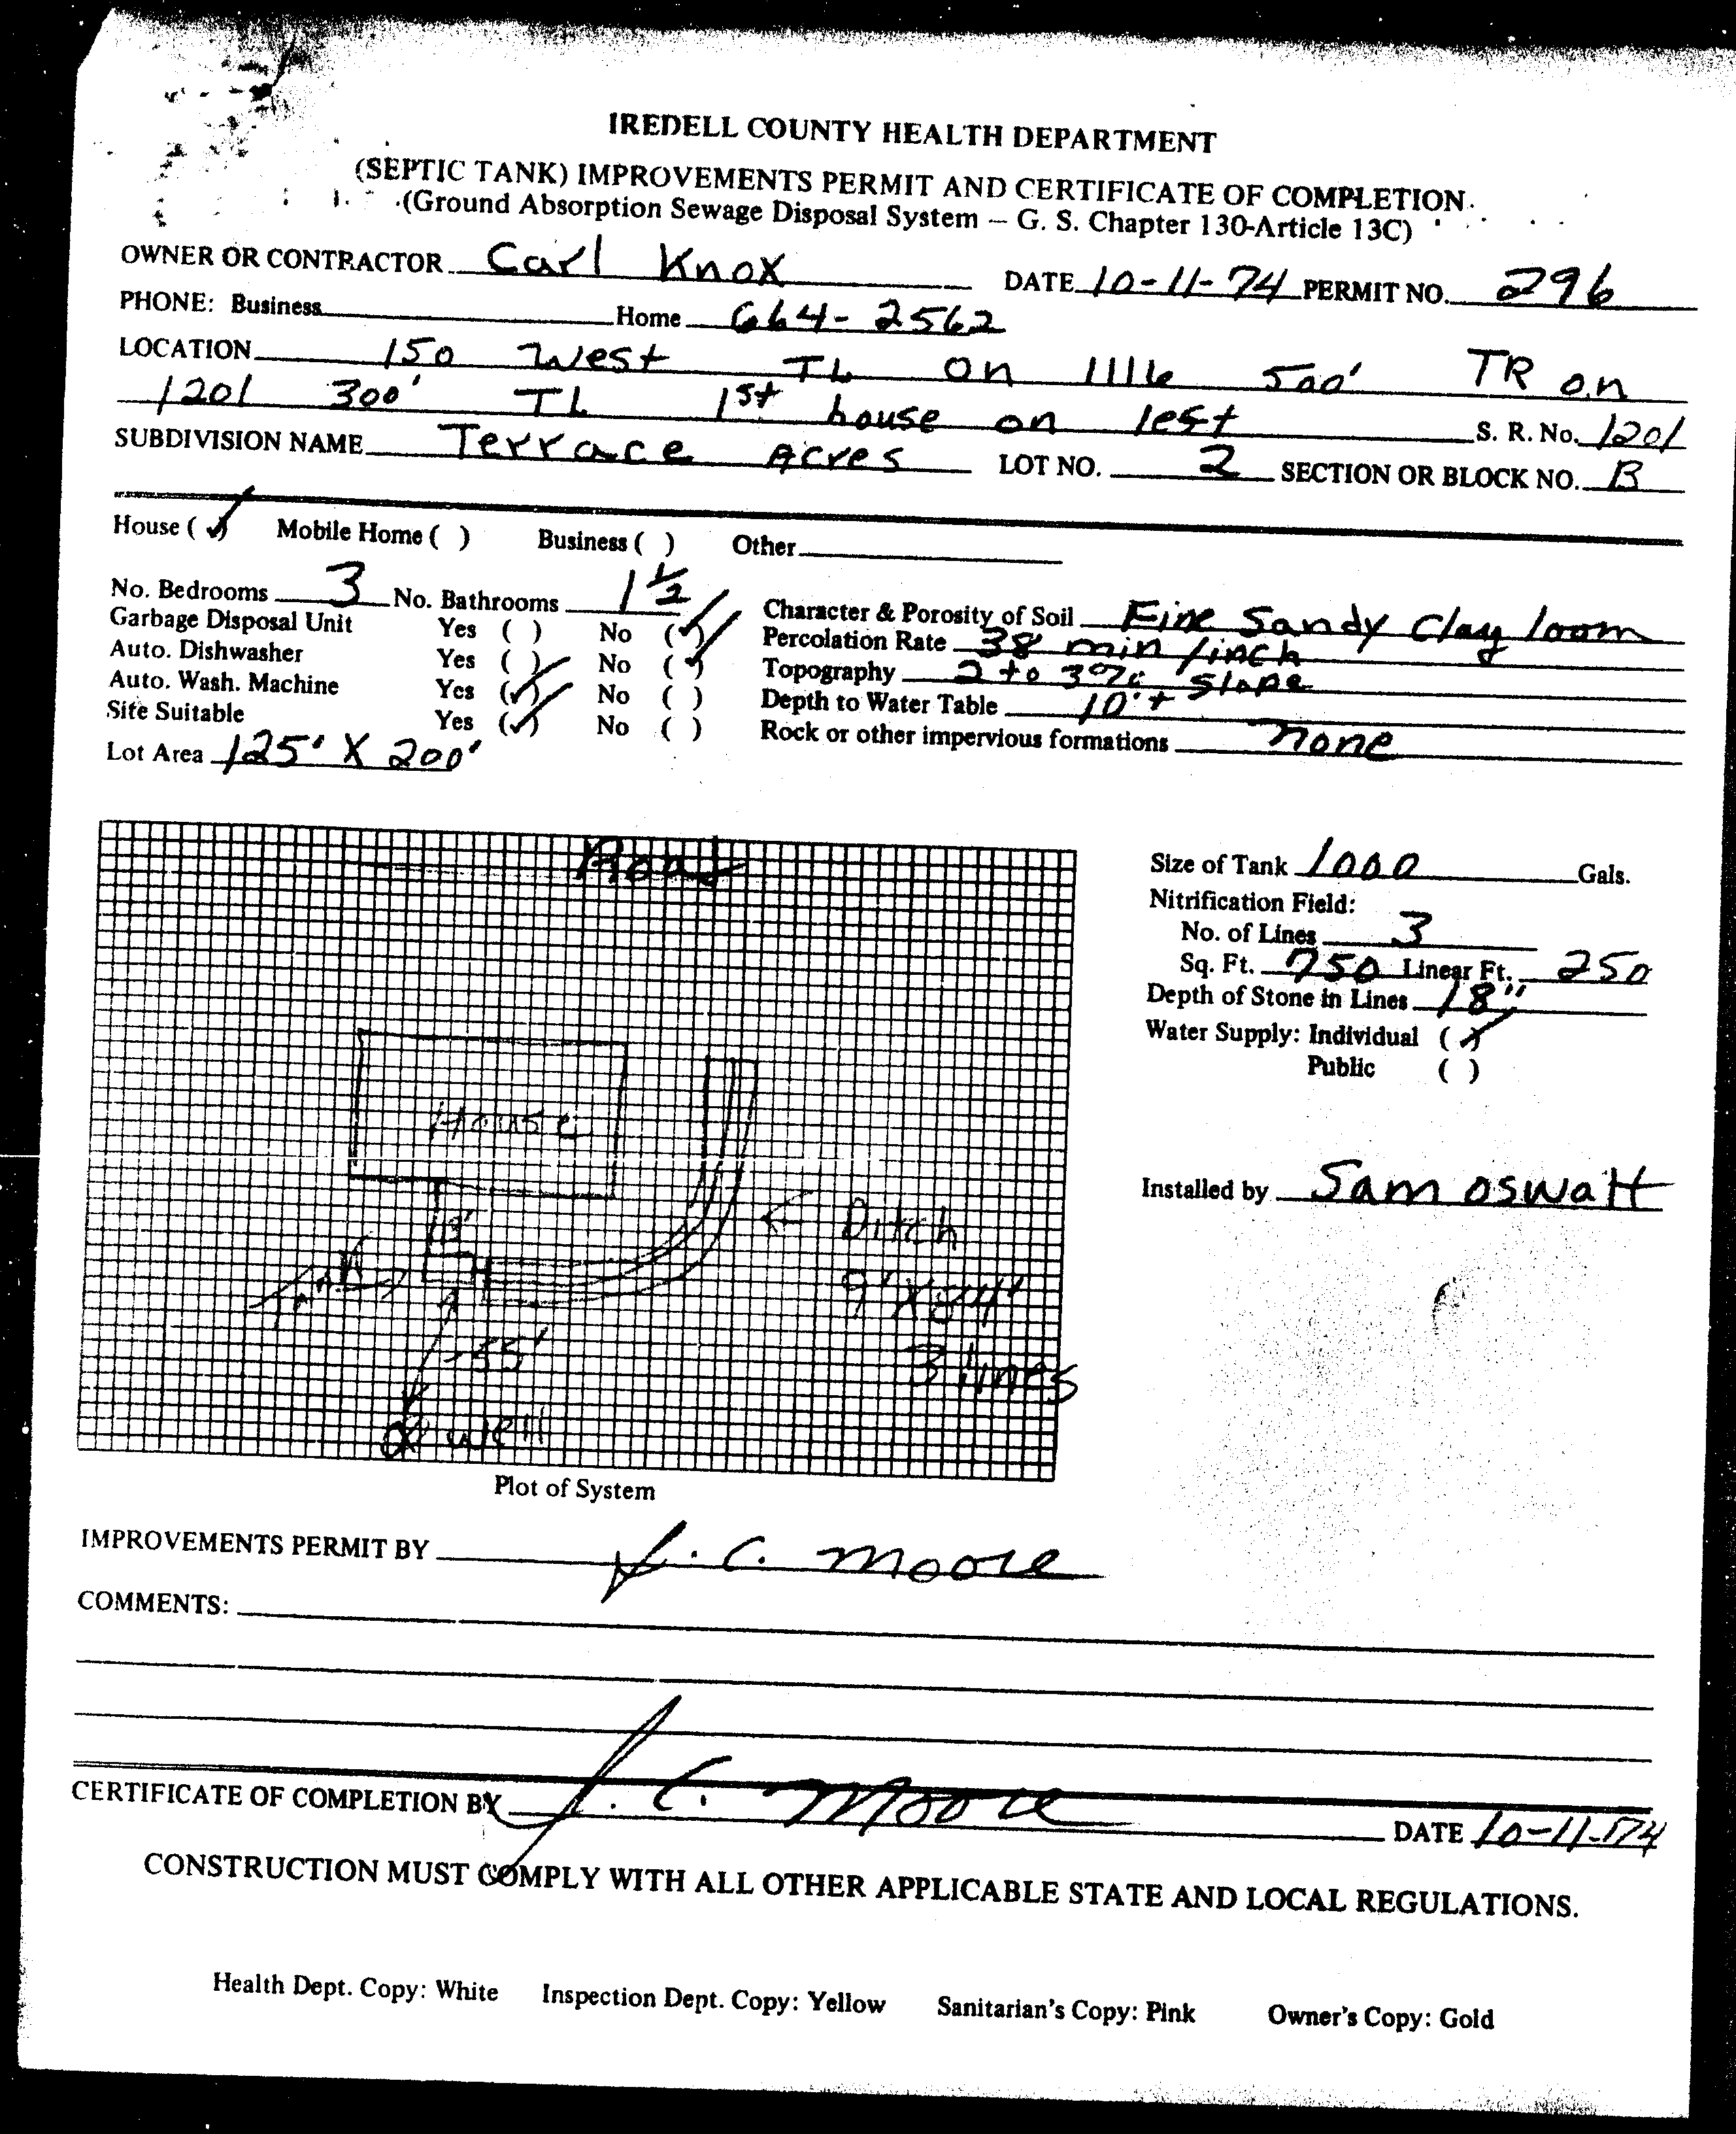 IREDELL COUNTY HEALTH DEPARTMENT
(SEPTIC TANK) IMPROVEMENTS PERMIT AND CERTIFICATE OF COMPLETION
(Ground Absorption Sewage Disposal System – G. S. Chapter 130-Article 13C)
OWNER OR CONTRACTOR Carl Knox DATE 10-11-74 PERMIT NO. 296
PHONE: Business Home 664-2562
LOCATION 150 West TL on 1116 500' TR on
1201 300' TL 1st house on left S. R. No. 1201
SUBDIVISION NAME Terrace Acres LOT NO. 2 SECTION OR BLOCK NO. B
House (✓) Mobile Home ( ) Business ( ) Other
No. Bedrooms 3 No. Bathrooms 1 1/2
Garbage Disposal Unit Yes ( ) No (✓)
Auto. Dishwasher Yes ( ) No (✓)
Auto. Wash. Machine Yes (✓) No ( )
Site Suitable Yes (✓) No ( )
Lot Area 125' X 200'
Character & Porosity of Soil Fine Sandy Clay loom
Percolation Rate 38 min/inch
Topography 2 to 3% slope
Depth to Water Table 10'+
Rock or other impervious formations none
Road
House
13'
Tank
55'
well
Ditch
9' X 84'
3 lines
Plot of System
Size of Tank 1000 Gals.
Nitrification Field:
No. of Lines 3
Sq. Ft. 750 Linear Ft. 250
Depth of Stone in Lines 18"
Water Supply: Individual (✓)
Public ( )
Installed by Sam Oswalt
IMPROVEMENTS PERMIT BY J. C. Moore
COMMENTS:
CERTIFICATE OF COMPLETION BY J. C. Moore DATE 10-11-74
CONSTRUCTION MUST COMPLY WITH ALL OTHER APPLICABLE STATE AND LOCAL REGULATIONS.
Health Dept. Copy: White Inspection Dept. Copy: Yellow Sanitarian's Copy: Pink Owner's Copy: Gold